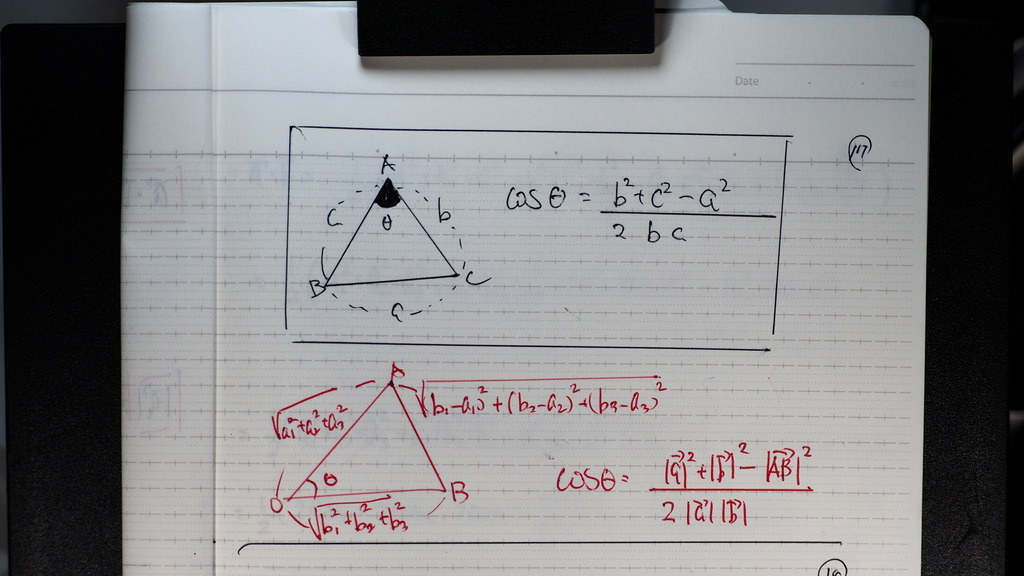 Date
(117)
A
c
b
θ
B
C
a
cos θ = (b² + c² - a²) / (2 b c)
A
√(a₁² + a₂² + a₃²)
√((b₁-a₁)² + (b₂-a₂)² + (b₃-a₃)²)
θ
O
B
√(b₁² + b₂² + b₃²)
cos θ = (|a⃗|² + |b⃗|² - |AB⃗|²) / (2 |a⃗| |b⃗|)